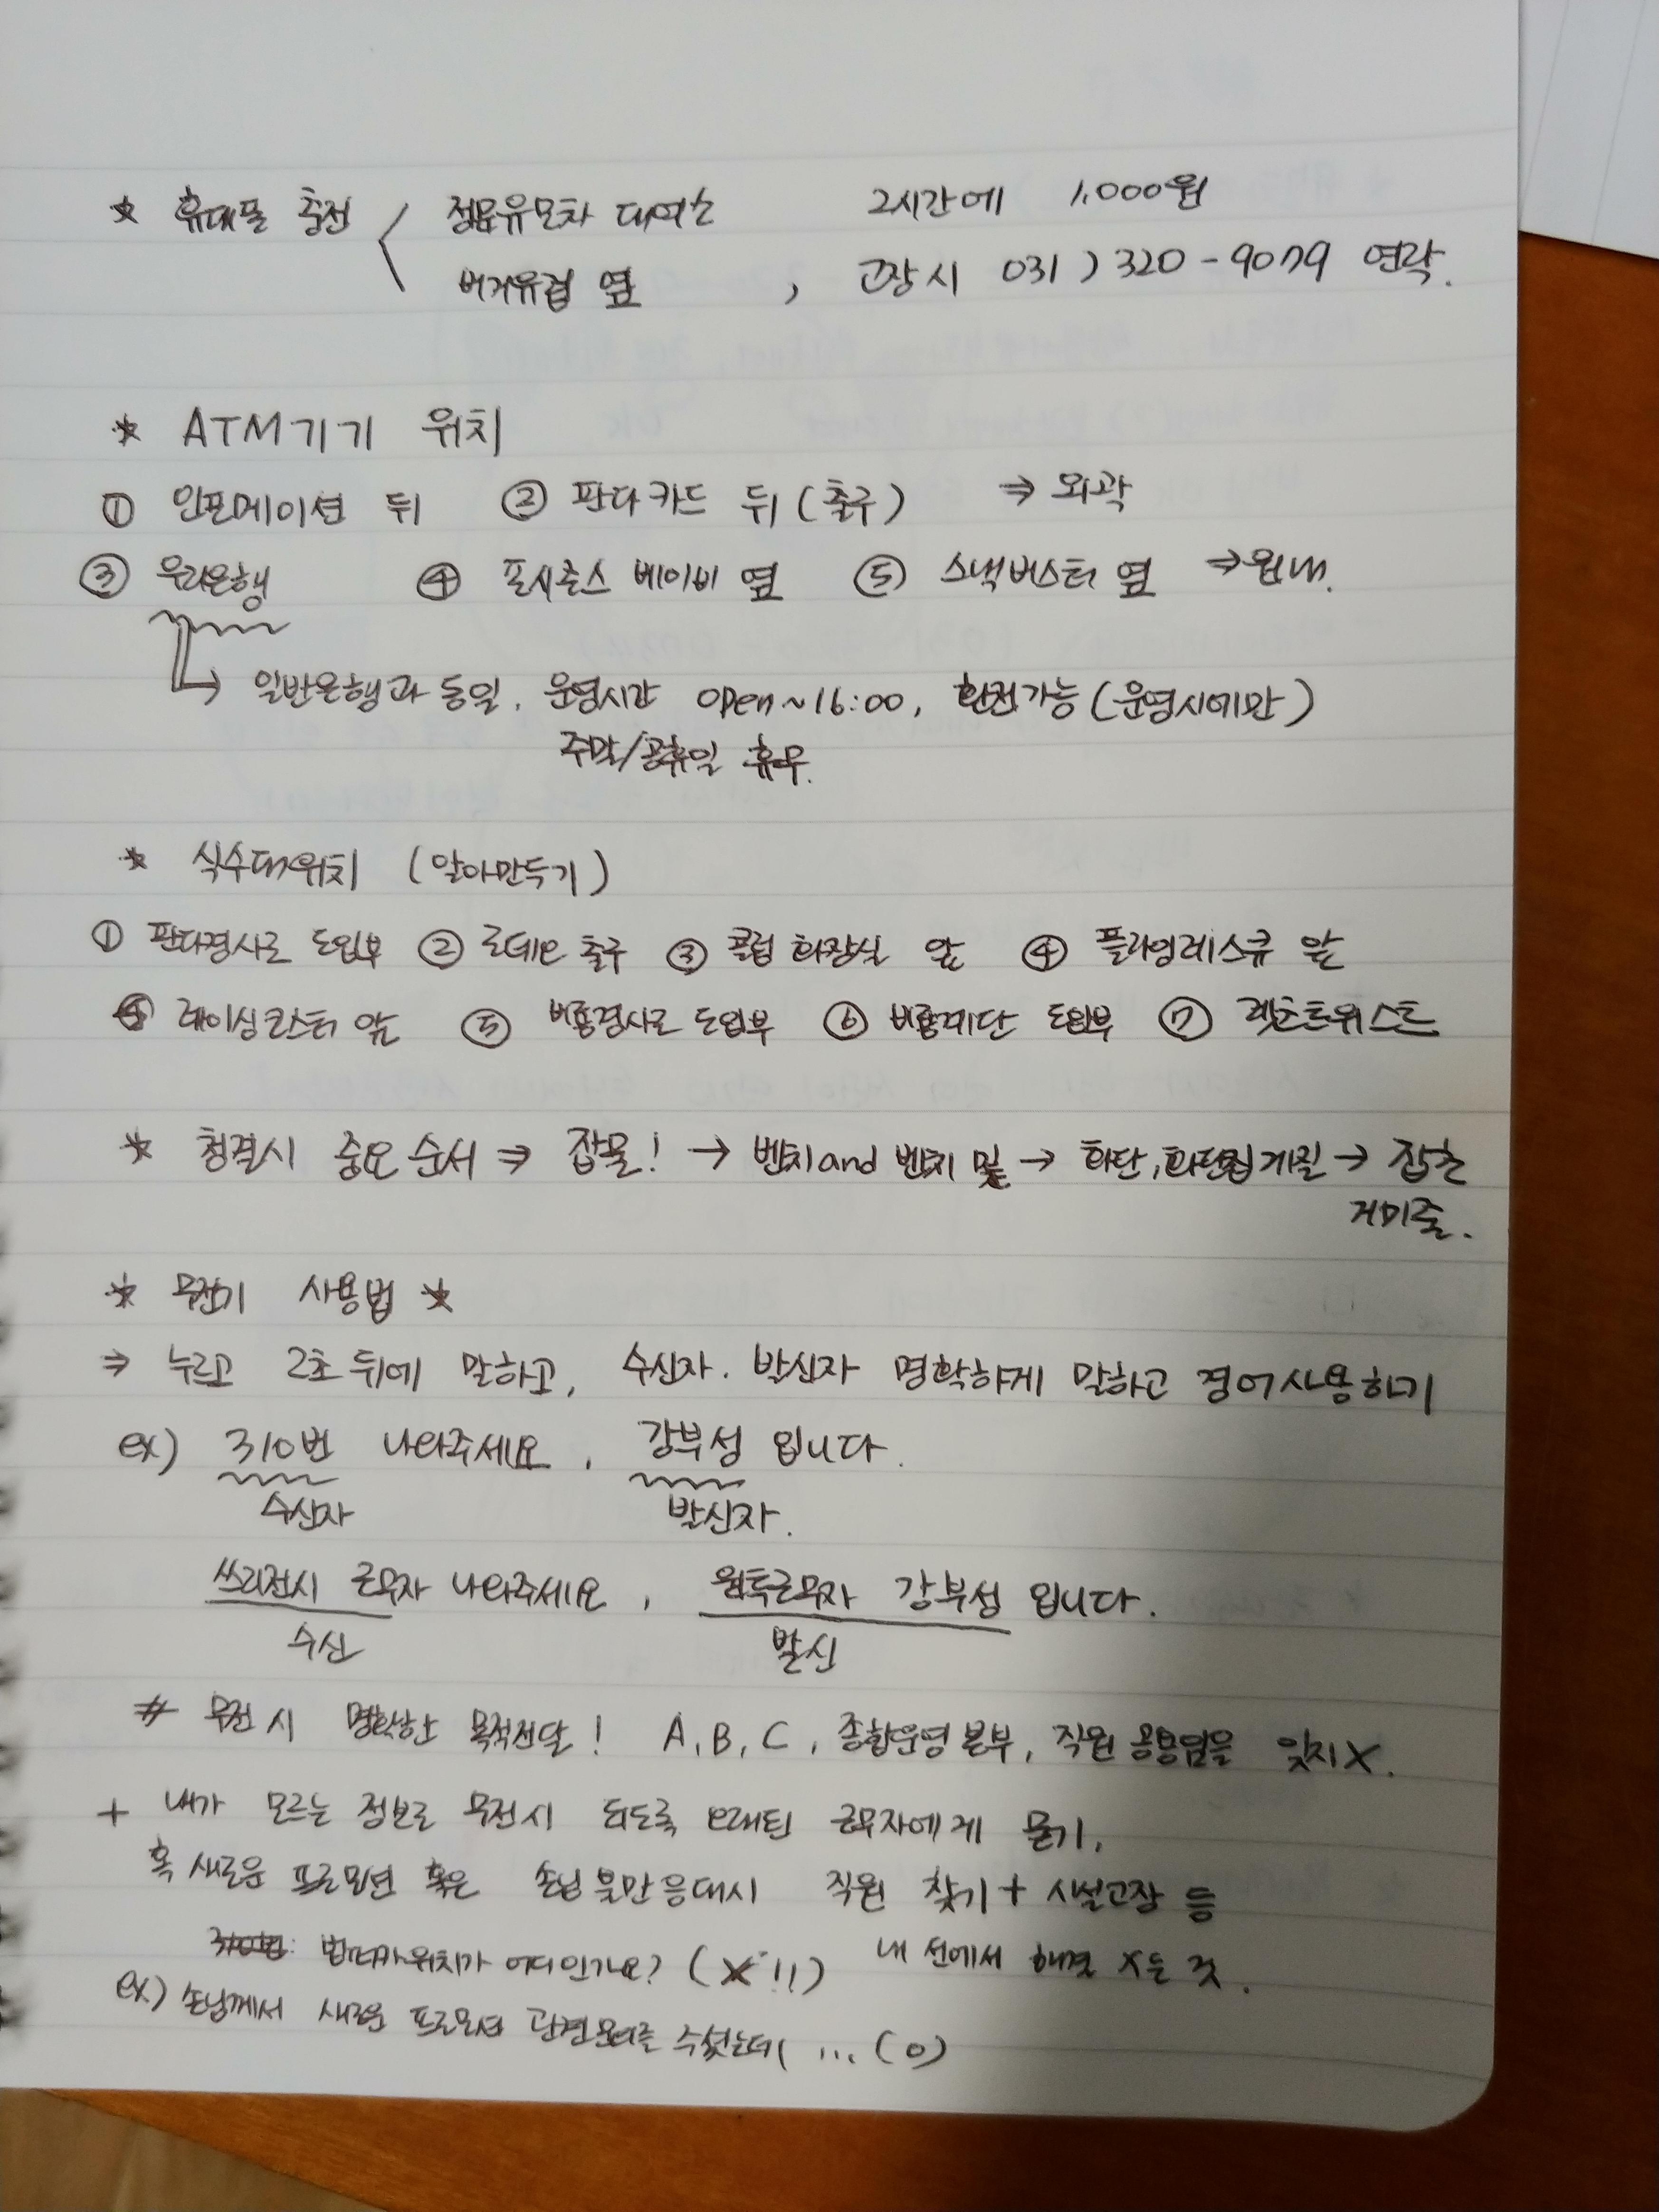 * 휴대폰 충전 < 정문유모차 대여소 2시간에 1,000원
버거유컵 옆 , 고장시 031) 320-9079 연락.
* ATM기기 위치
① 인포메이션 뒤 ② 판다카드 뒤 (출구) ⇒ 외곽
③ 우리은행 ④ 포시즌스 베이비 옆 ⑤ 스낵버스터 옆 ⇒ 원내.
↳ 일반은행과 동일. 운영시간 open~16:00, 환전가능 (운영시에만)
주말/공휴일 휴무.
* 식수대위치 (알아만두기)
① 판다경사로 도입부 ② 로데오 출구 ③ 콜럼 화장실 앞 ④ 플라잉레스큐 앞
레이싱코스터 앞 ⑤ 비룡경사로 도입부 ⑥ 비룡계단 도입부 ⑦ 렛츠트위스트
* 청결시 중요 순서 ⇒ 잡물! → 벤치and 벤치 밑 → 화단, 화단집게질 → 잡초
거미줄.
* 무전기 사용법 *
⇒ 누르고 2초 뒤에 말하고, 수신자. 발신자 명확하게 말하고 경어사용하기
ex) 310번 나와주세요, 강부성 입니다.
수신자 발신자.
쓰리전시 근무자 나와주세요, 원톡근무자 강부성 입니다.
수신 발신
# 무전시 명확한 목적전달! A, B, C, 종합운영본부, 직원 공용임을 잊지X.
+ 내가 모르는 정보로 무전시 되도록 오래된 근무자에게 묻기,
혹 새로운 프로모션 혹은 손님 불만 응대시 직원 찾기 + 시설고장 등
범퍼카위치가 어디인가요? (X!!) 내 선에서 해결 X는 것.
ex) 손님께서 새로운 프로모션 관련문의를 주셨는데, ... (O)